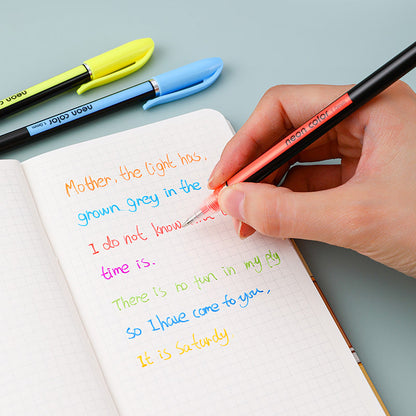 neon color
neon color 1.0mm
neon color
Mother, the light has.
grown grey in the
I do not know
time is.
There is no fun in my ply
so I have come to you,
It is saturdy